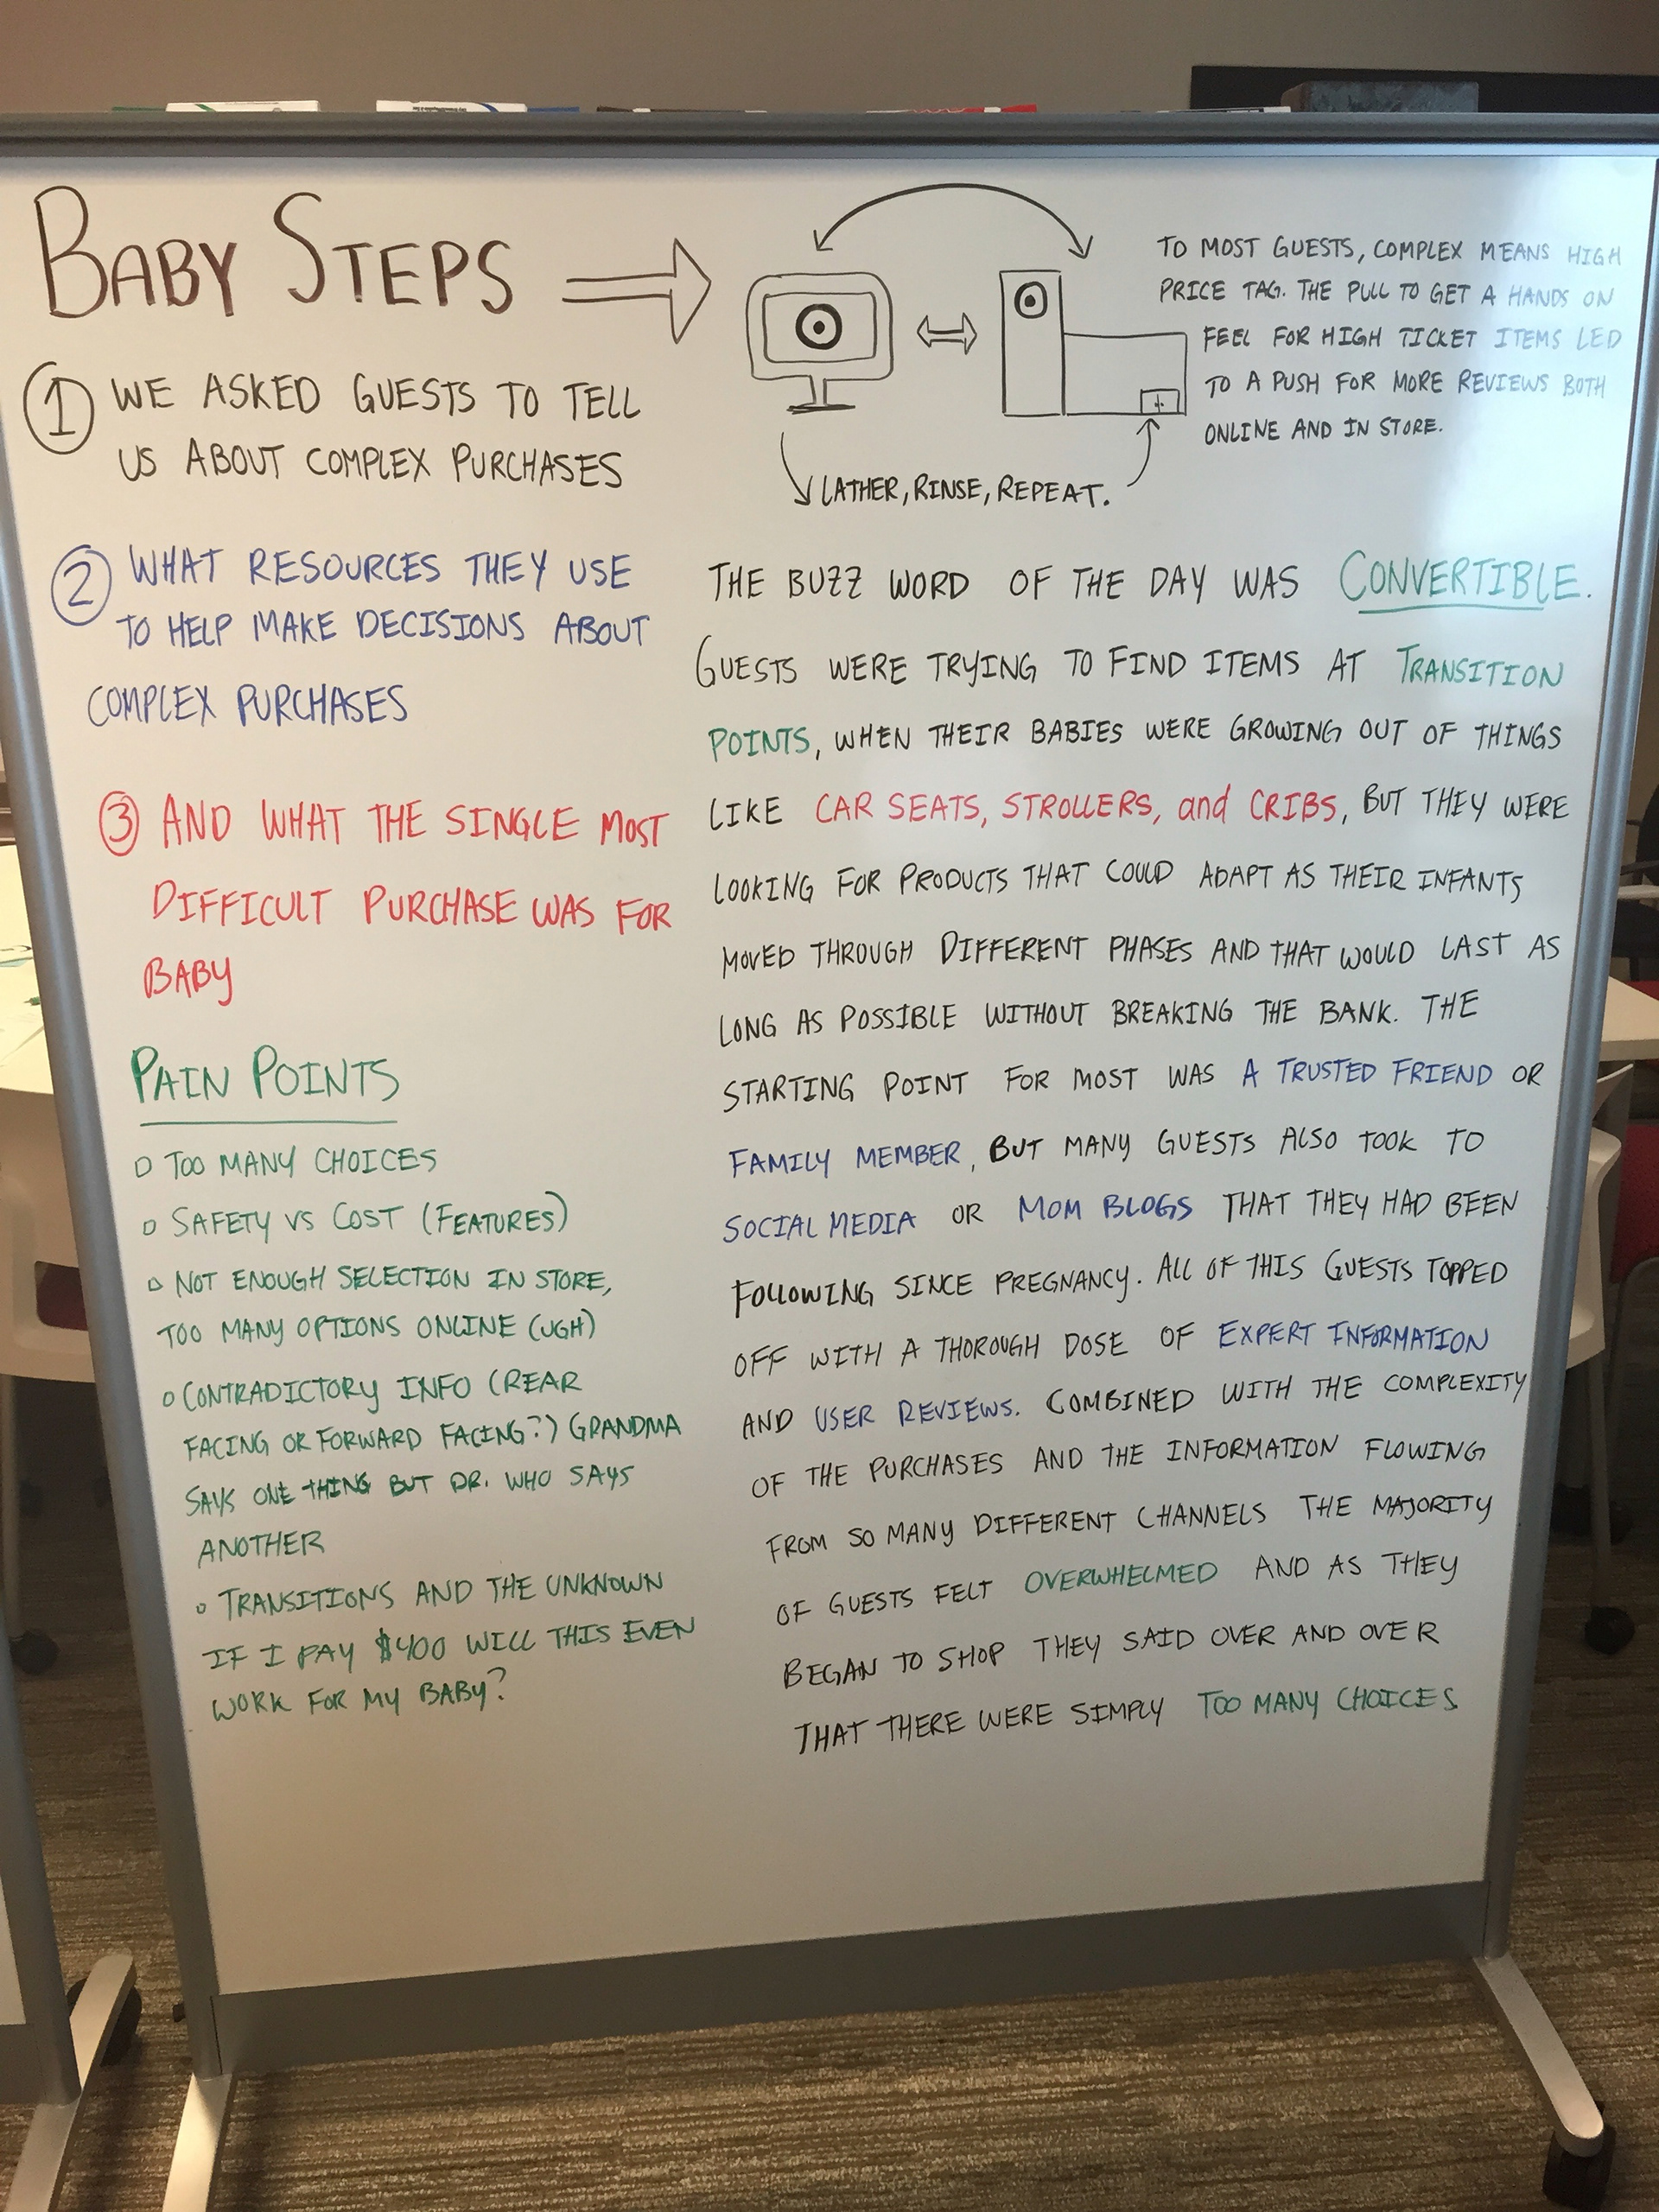 BABY STEPS
① WE ASKED GUESTS TO TELL
US ABOUT COMPLEX PURCHASES
② WHAT RESOURCES THEY USE
TO HELP MAKE DECISIONS ABOUT
COMPLEX PURCHASES
③ AND WHAT THE SINGLE MOST
DIFFICULT PURCHASE WAS FOR
BABY
PAIN POINTS
○ TOO MANY CHOICES
○ SAFETY VS COST (FEATURES)
○ NOT ENOUGH SELECTION IN STORE,
TOO MANY OPTIONS ONLINE (UGH)
○ CONTRADICTORY INFO (REAR
FACING OR FORWARD FACING?) GRANDMA
SAYS ONE THING BUT DR. WHO SAYS
ANOTHER
○ TRANSITIONS AND THE UNKNOWN
IF I PAY $400 WILL THIS EVEN
WORK FOR MY BABY?
TO MOST GUESTS, COMPLEX MEANS HIGH
PRICE TAG. THE PULL TO GET A HANDS ON
FEEL FOR HIGH TICKET ITEMS LED
TO A PUSH FOR MORE REVIEWS BOTH
ONLINE AND IN STORE.
LATHER, RINSE, REPEAT.
THE BUZZ WORD OF THE DAY WAS CONVERTIBLE.
GUESTS WERE TRYING TO FIND ITEMS AT TRANSITION
POINTS, WHEN THEIR BABIES WERE GROWING OUT OF THINGS
LIKE CAR SEATS, STROLLERS, and CRIBS, BUT THEY WERE
LOOKING FOR PRODUCTS THAT COULD ADAPT AS THEIR INFANTS
MOVED THROUGH DIFFERENT PHASES AND THAT WOULD LAST AS
LONG AS POSSIBLE WITHOUT BREAKING THE BANK. THE
STARTING POINT FOR MOST WAS A TRUSTED FRIEND OR
FAMILY MEMBER, BUT MANY GUESTS ALSO TOOK TO
SOCIAL MEDIA OR MOM BLOGS THAT THEY HAD BEEN
FOLLOWING SINCE PREGNANCY. ALL OF THIS GUESTS TOPPED
OFF WITH A THOROUGH DOSE OF EXPERT INFORMATION
AND USER REVIEWS. COMBINED WITH THE COMPLEXITY
OF THE PURCHASES AND THE INFORMATION FLOWING
FROM SO MANY DIFFERENT CHANNELS THE MAJORITY
OF GUESTS FELT OVERWHELMED AND AS THEY
BEGAN TO SHOP THEY SAID OVER AND OVER
THAT THERE WERE SIMPLY TOO MANY CHOICES